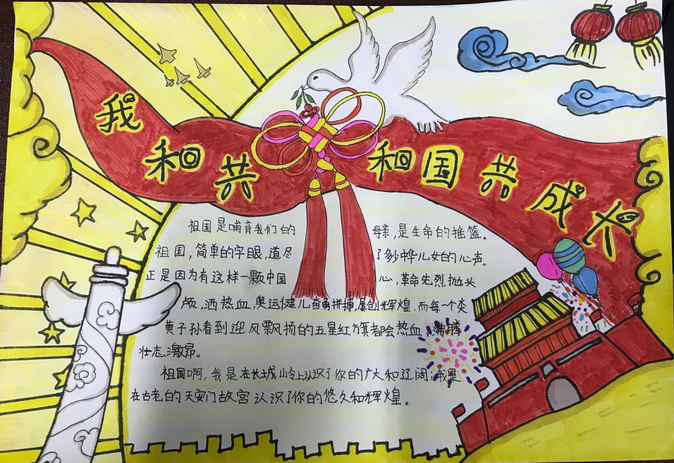 我和共和国共成长
祖国是哺育我们的母亲,是生命的摇篮。
祖国,简单的字眼,道尽了多少中华儿女的心声。
正是因为有这样一颗中国心,革命先烈抛头
颅,洒热血,奥运健儿奋勇拼搏屡创辉煌,而每个炎
黄子孙看到迎风飘扬的五星红旗都会热血沸腾
壮志激昂。
祖国啊,我是在长城山岭上认识了你的广大和辽阔,我是
在古老的天安门故宫认识了你的悠久和辉煌。